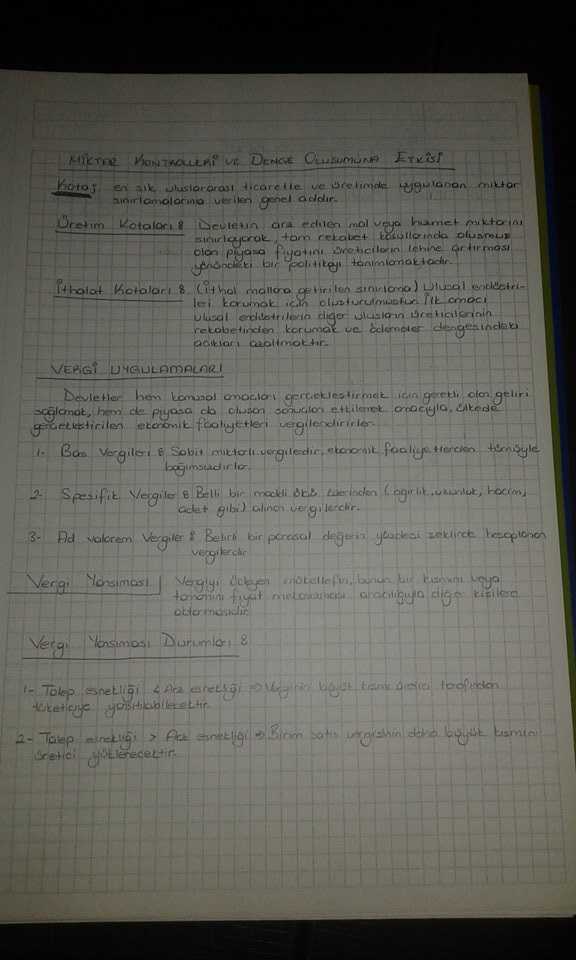 MİKTAR KONTROLLERİ VE DENGE OLUŞUMUNA ETKİSİ
Kota; en sık uluslararası ticarette ve üretimde uygulanan miktar
sınırlamalarına verilen genel addır.
Üretim Kotaları : Devletin arz edilen mal veya hizmet miktarını
sınırlayarak, tam rekabet koşullarında oluşmuş
olan piyasa fiyatını üreticilerin lehine artırması
yönündeki bir politikayı tanımlamaktadır.
İthalat Kotaları : (İthal mallara getirilen sınırlama) Ulusal endüstri-
leri korumak için oluşturulmuştur. İlk amacı
ulusal endüstrilerin diğer ulusların üreticilerinin
rekabetinden korumak ve ödemeler dengesindeki
açıkları azaltmaktır.
VERGİ UYGULAMALARI
Devletler hem kamusal amaçları gerçekleştirmek için gerekli olan geliri
sağlamak, hem de piyasa da oluşan sonuçları etkilemek amacıyla, ülkede
gerçekleştirilen ekonomik faaliyetleri vergilendirirler.
1- Baş Vergileri : Sabit miktarlı vergilerdir, ekonomik faaliyetlerden tümüyle
bağımsızdırlar.
2- Spesifik Vergiler : Belli bir maddi ölçü üzerinden (ağırlık, uzunluk, hacim,
adet gibi) alınan vergilerdir.
3- Ad valorem Vergiler : Belirli bir parasal değerin yüzdesi şeklinde hesaplanan
vergilerdir
Vergi Yansıması | Vergiyi ödeyen mükellefin, bunun bir kısmını veya
tamamını fiyat mekanizması aracılığıyla diğer kişilere
aktarmasıdır.
Vergi Yansıması Durumları :
1- Talep esnekliği < Arz esnekliği => Verginin büyük kısmı üretici tarafından
tüketiciye yansıtılabilecektir.
2- Talep esnekliği > Arz esnekliği => Birim satış vergisinin daha büyük kısmını
üretici yüklenecektir.